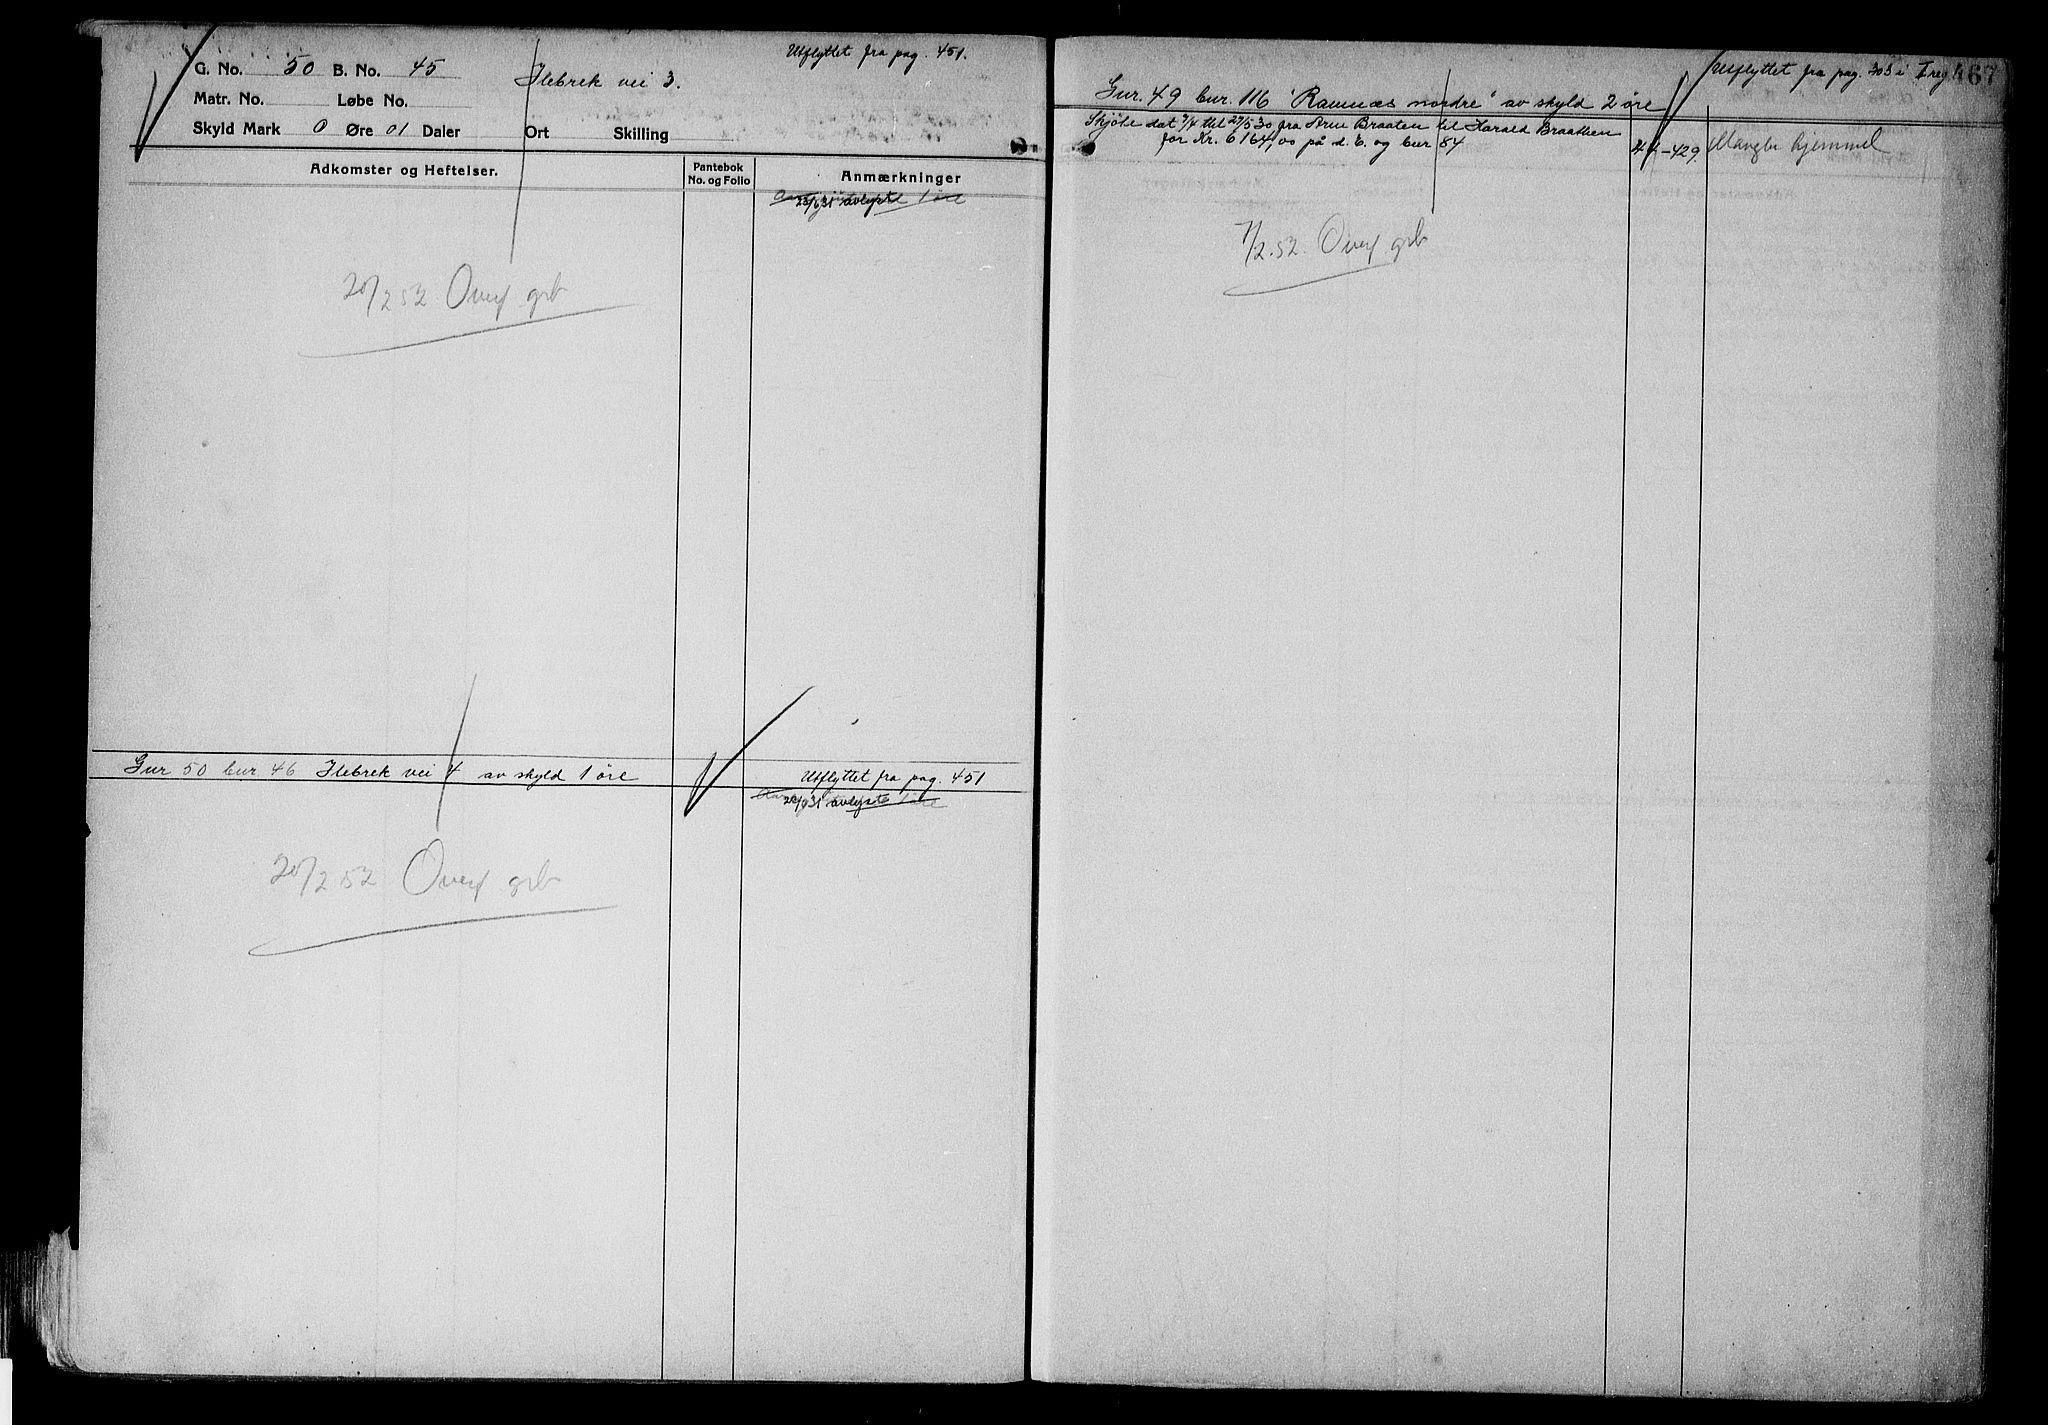 Utflyttet fra pag. 451.
G. No. 50 B. No. 45
Ilebrek vei 3.
Matr. No. Løbe No.
Skyld Mark 0 Øre 01 Daler Ort Skilling
Adkomster og Heftelser.
Pantebok
No. og Folio
Anmærkninger
avlyst 1 øre
20/2 52 Overf grb
Gnr 50 bnr 46 Ilebrek vei 4 av skyld 1 øre
Utflyttet fra pag. 451
avlyst 1 øre
20/2 52 Overf grb
Utflyttet fra pag. 303 i I reg. 467
Gnr. 49 bnr. 116 "Ramnæs nordre" av skyld 2 øre
Skjöte dat 3/4 thl 27/5 30 fra Arne Braaten til Harald Braathen
for Kr. 6164,00 på d. E. og bnr 84
44-429.
Mangler hjemmel
7/2.52. Overf grb